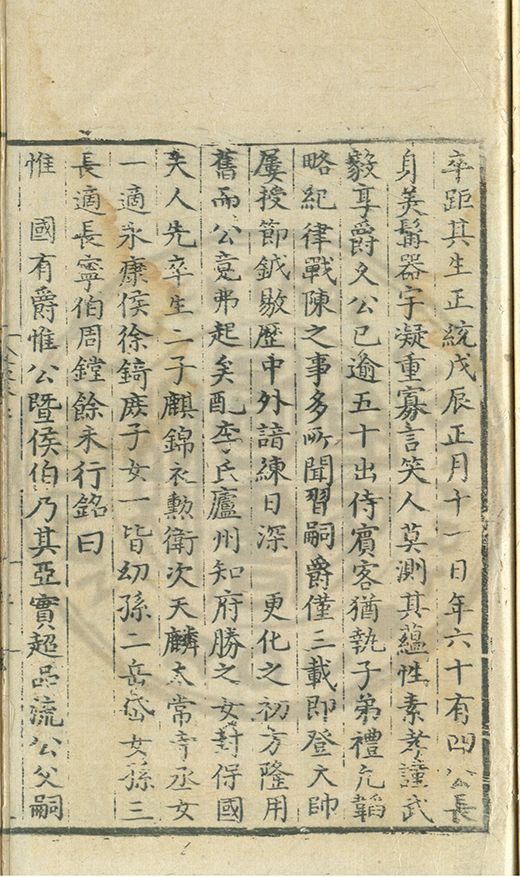 卒距其生正統戊辰正月十一日年六十有四公長
身美髯器宇凝重寡言笑人莫測其蘊性素孝謹武
毅享爵久公已逾五十出侍賓客猶執子弟禮凡韜
略紀律戰陳之事多所聞習嗣爵僅三載即登大帥
屢授節鉞敭歷中外諳練日深　更化之初方隆用
舊而公竟弗起矣配李氏廬州知府勝之女封保國
夫人先卒生二子麒錦衣勲衛次天麟太常寺丞女
一適永康侯徐錡庶子女一皆幼孫二岳岱女孫三
長適長寧伯周鏜餘未行銘曰
惟　國有爵惟公暨侯伯乃其亞實超品流公父嗣